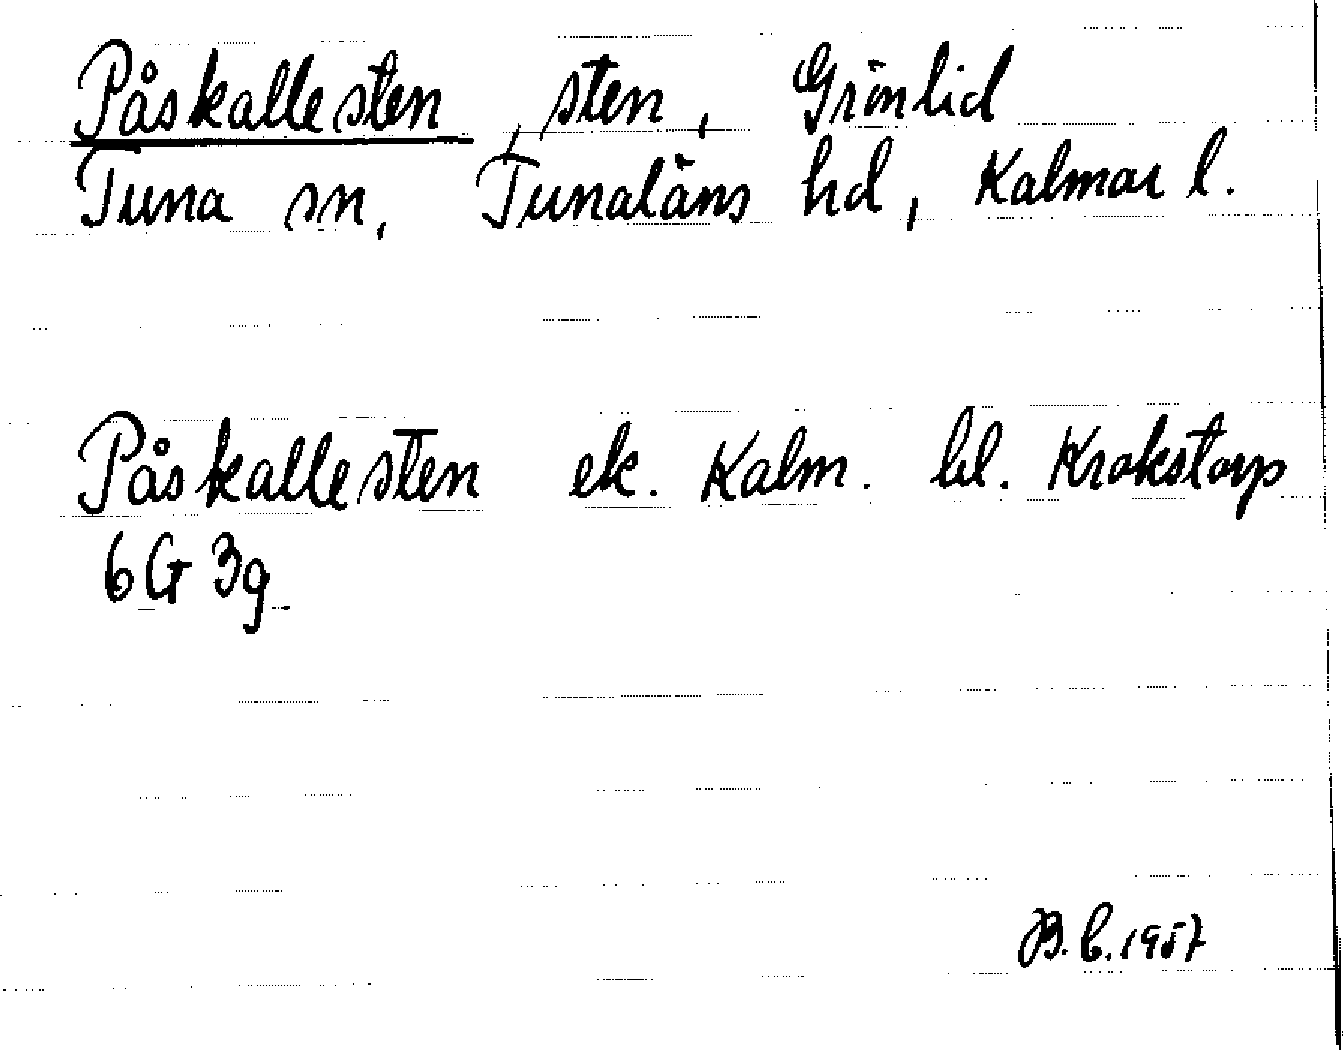 Påskallesten, sten, Grönlid
Tuna sn, Tunaläns hd, Kalmar l.
Påskallesten ek. Kalm. bl. Krokstorp
6G 3g
B.C. 1957